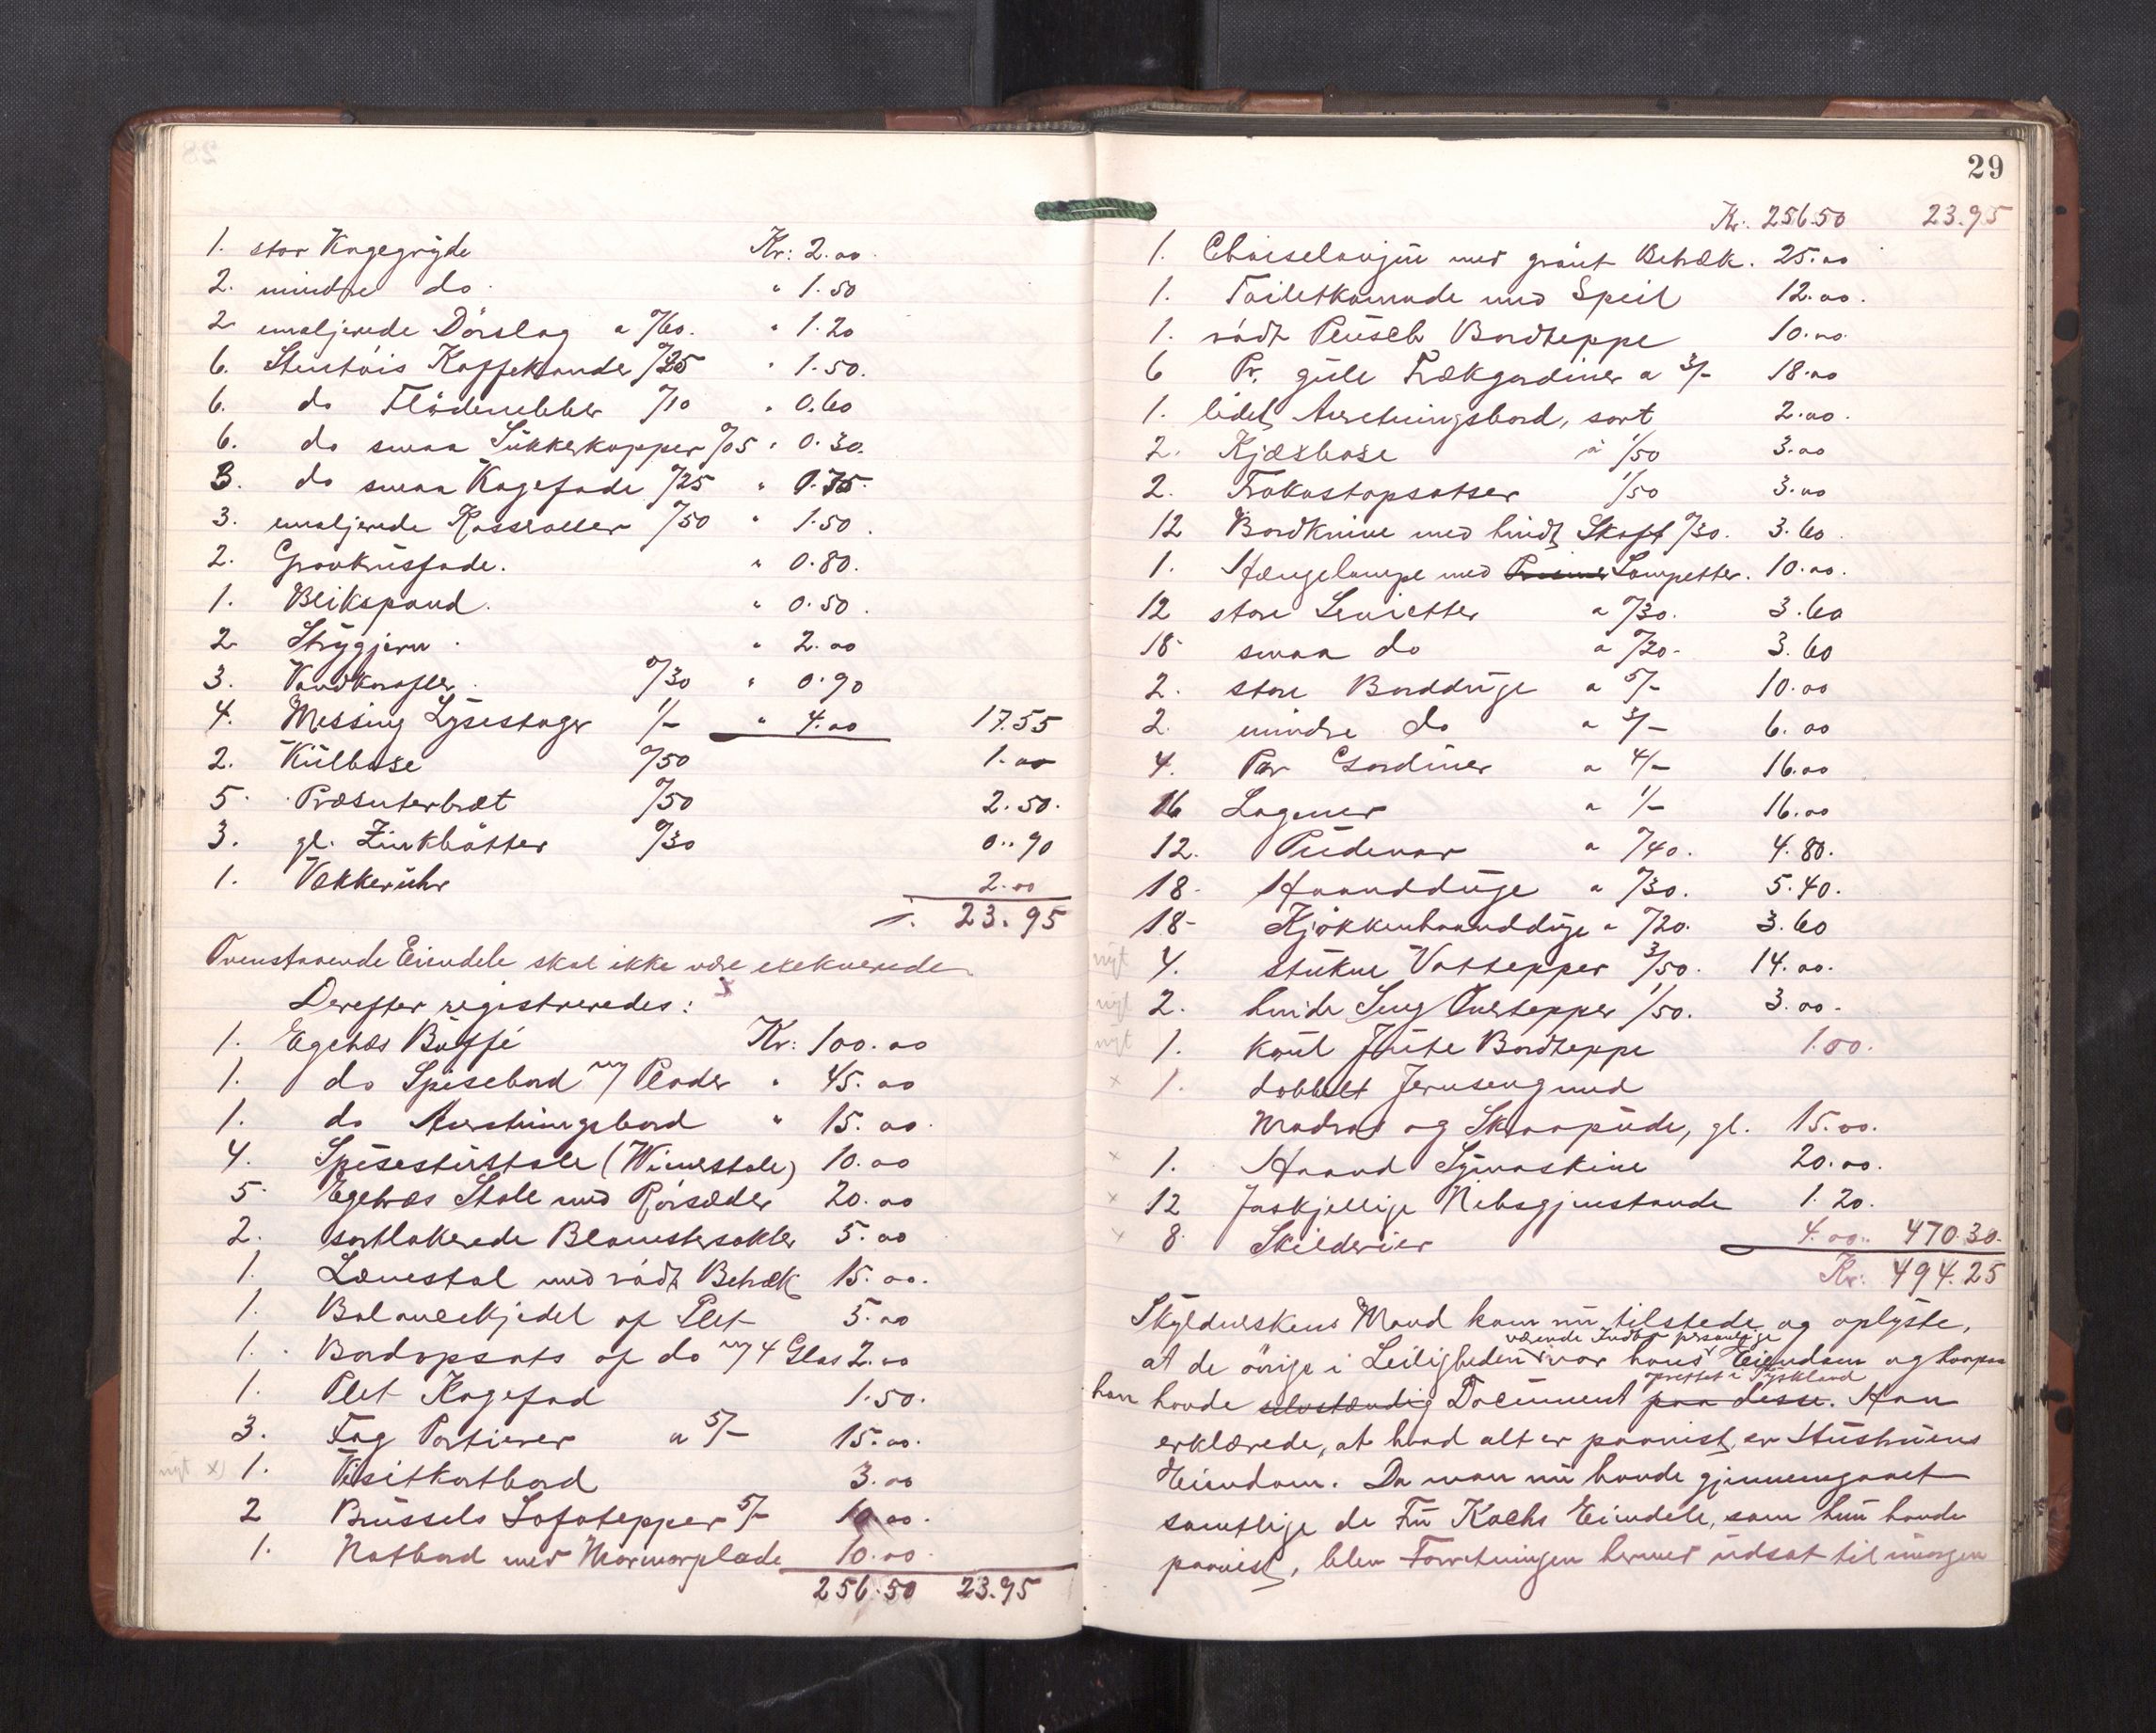 1. stor Kagegryde Kr: 2.00
2. mindre do. " 1.50
2 emaljerede Dörslag a 0/60. " 1.20
6. Stentöis Kaffekander 0/25 " 1.50.
6. do Flödenebber 0/10 " 0.60
6. do smaa Sükkerkopper 0/05 " 0.30.
3. do smaa Kagefade 0/25 " 0.75.
3. emaljerede Kasseroller 0/50 " 1.50.
2. Gravkrusfade. " 0.80.
1. Blikspand. " 0.50.
2 Strygjern. " 2.00
3. Vandkarafler. 0/30 " 0.90
4. Messing Lysestager 1/- " 4.00 17.55
2. Külbøse 0/50 1.00
5. Præsenterbræt 0/50 2.50.
3. gl. Zinkbøtter 0/30 0.90
1. Vækkerühr 2.00
23.95
Ovenstaaende Eiendele skal ikke være exekverede
Derefter registreredes:
1. Egetræs Büffé Kr: 100.00
1. do Spisebord m/ Plader " 45.00
1. do Anretningsbord " 15.00.
4. Spisestüestole (Wienerstole) 10.00
5. Egetræs Stole med Rörsæder 20.00
2. sortlakerede Blomstersokler 5.00
1. Lænestol med rödt Betræk 15.00.
1. Balancekjedel af Plet 5.00
1. Bordopsats af do m/ 4 Glas 2.00
1. Plet Kagefad 1.50.
3. Fag Portierer a 5/- 15.00.
nyt x) 1. Visitkortbord 3.00
2 Brüssels Sofatepper 5/- 10.00.
1. Natbord med Marmorplade 10.00
256.50 23.95
29
Kr. 256.50 23.95
1. Chaiselongüe med grönt Betræk. 25.00
1. Toiletkomode med Speil 12.00.
1. rödt Plüsch Bordteppe 10.00.
6 Pr. güle Trækgardiner a 3/- 18.00
1. lidet Anretningsbord, sort 2.00.
2. Kjæxbøse à 1/50 3.00
2. Frokostopsatser 1/50 3.00
12 Bordknive med hvidt Skaft 0/30. 3.60.
1. Hængelampe med Prismer Lampetter. 10.00.
12 store Servietter a 0/30. 3.60
18 smaa do a 0/20. 3.60
2. store Bordduge a 5/- 10.00
2. mindre do a 3/- 6.00
4. Par Gardiner a 4/- 16.00
16 Lagener a 1/- 16.00
12. Püdevar a 0/40. 4.80.
18. Haandduge a 0/30. 5.40.
18- Kjökkenhaandduge a 0/20. 3.60
nyt 4. stükne Vattepper 3/50. 14.00.
nyt 2. hvide Seng Overtepper 1/50. 3.00.
nyt 1. Jüte Bordteppe 1.00.
x 1. dobbelt Jernseng med
Madras og Skraapüde, gl. 15.00.
x 1. Haand Symaskine 20.00.
x 12 forskjellige Nibsgjenstande 1.20.
x 8. Skilderier 4.00. 470.30.
Kr: 494.25
Skyldnerskens Mand kom nü tilstede og oplyste,
at de övrige i Leiligheden værende Indbo var hans personlige Eiendom og herpaa
han havde selvstændig Document oprettet i Tyskland paa desse. Han
erklærede, at hvad alt er paavist, er Hüstrüens
Eiendom. Da man nü havde gjennemgaaet
samtlige de Frü Kochs Eiendele, som hün havde
paavist, blev Forretningen hermed üdsat til imorgen